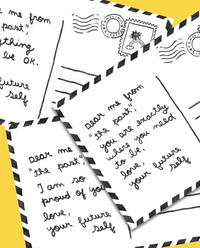 me from
past",
be OK.
future
self
Dear me
"the past"
I am so
proud of you
love,
your future
self
Dear me from
"the past",
you are exactly
where you need
to be.
love,
your future
self